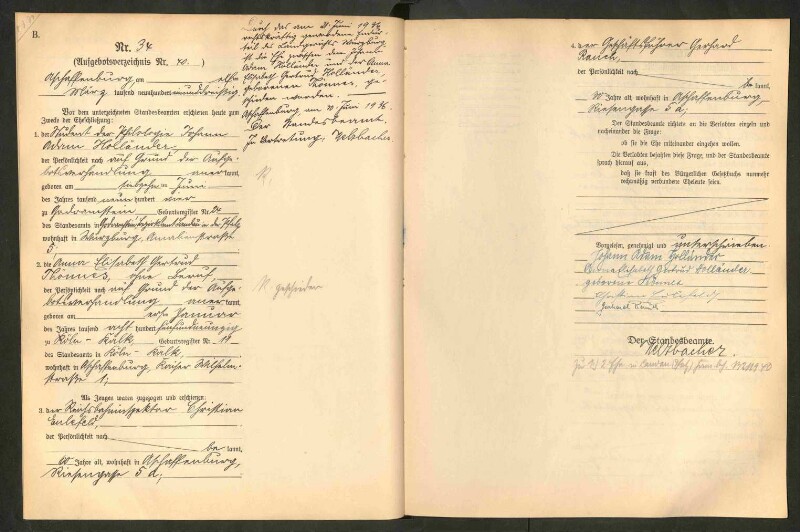 B.
Nr. 34
(Aufgebotsverzeichnis Nr. 40.)
Aschaffenburg, am elften
März tausend neunhundert unddreißig.
Vor dem unterzeichneten Standesbeamten erschienen heute zum
Zwecke der Eheschließung:
1. der Student der Philologie Johann
Adam Holländer
der Persönlichkeit nach auf Grund der Aufge-
botsverhandlung anerkannt,
geboren am siebzehnten Juni
des Jahres tausend neun hundert vier
zu Godramstein, Geburtsregister Nr.
des Standesamts in Godramstein in der Pfalz
wohnhaft in Würzburg, Annastraße
5;
2. die Anna Elisabeth Gertrud
Thönnes, ohne Beruf
der Persönlichkeit nach auf Grund der Aufge-
botsverhandlung anerkannt,
geboren am Januar
des Jahres tausend acht hundert fünfundneunzig
zu Köln - Kalk, Geburtsregister Nr.
des Standesamts in Köln - Kalk,
wohnhaft in Aschaffenburg, Kaiser Wilhelm-
straße 1;
Als Zeugen waren zugezogen und erschienen:
3. der Reichsbahninspektor Christian
Eulefeld,
der Persönlichkeit nach
bekannt,
60 Jahre alt, wohnhaft in Aschaffenburg,
Riesengasse 5 a;
Durch das am Juni 1936
rechtskräftig gewordene Endur-
teil des Landgerichts Würzburg
ist die Ehe zwischen dem Johann
Adam Holländer und der Anna
Elisabeth Gertrud Holländer,
geborenen Thönnes, ge-
schieden worden.
Aschaffenburg am Juni 1936
Der Standesbeamte.
In Vertretung: Welzbacher.
geschieden
4. der Geschäftsführer Gerhard
Rauch,
der Persönlichkeit nach
bekannt,
Jahre alt, wohnhaft in Aschaffenburg,
Riesengasse 5 a;
Der Standesbeamte richtete an die Verlobten einzeln und
nacheinander die Frage:
ob sie die Ehe miteinander eingehen wollen.
Die Verlobten bejahten diese Frage und der Standesbeamte
sprach hierauf aus,
daß sie kraft des Bürgerlichen Gesetzbuchs nunmehr
rechtmäßig verbundene Eheleute seien.
Vorgelesen, genehmigt und unterschrieben
Johann Adam Holländer
Anna Elisabeth Gertrud Holländer
geborene Thönnes
Christian Eulefeld
Gerhard Rauch
Der Standesbeamte.
Welzbacher.